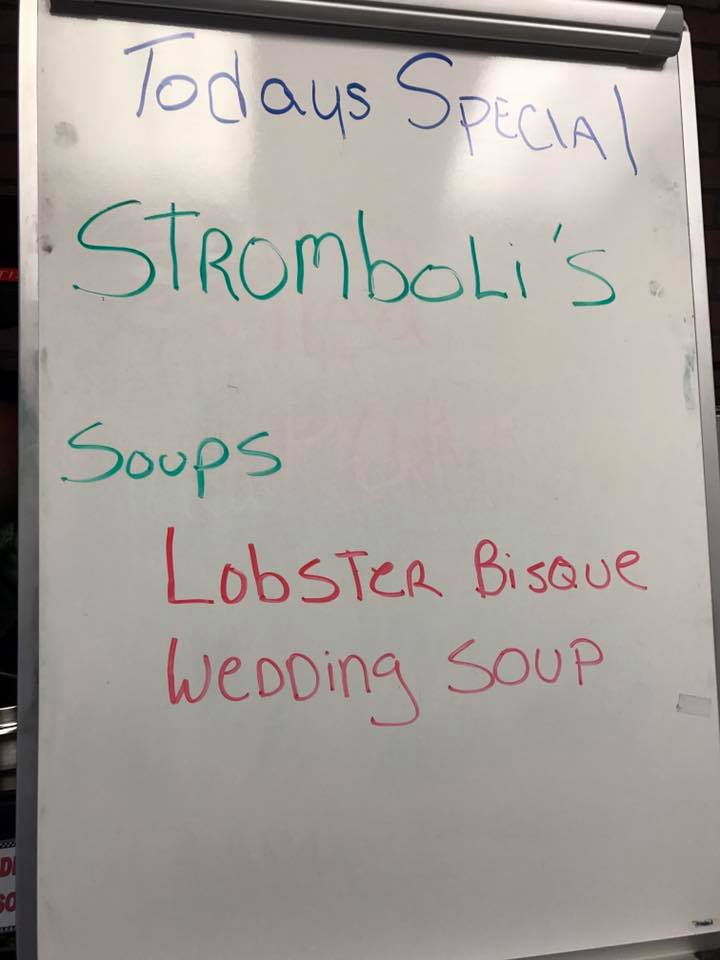 Todays SPECIAL
STROMboLi's
Soups
LobSTER BiSQUE
WEDDing SOUP